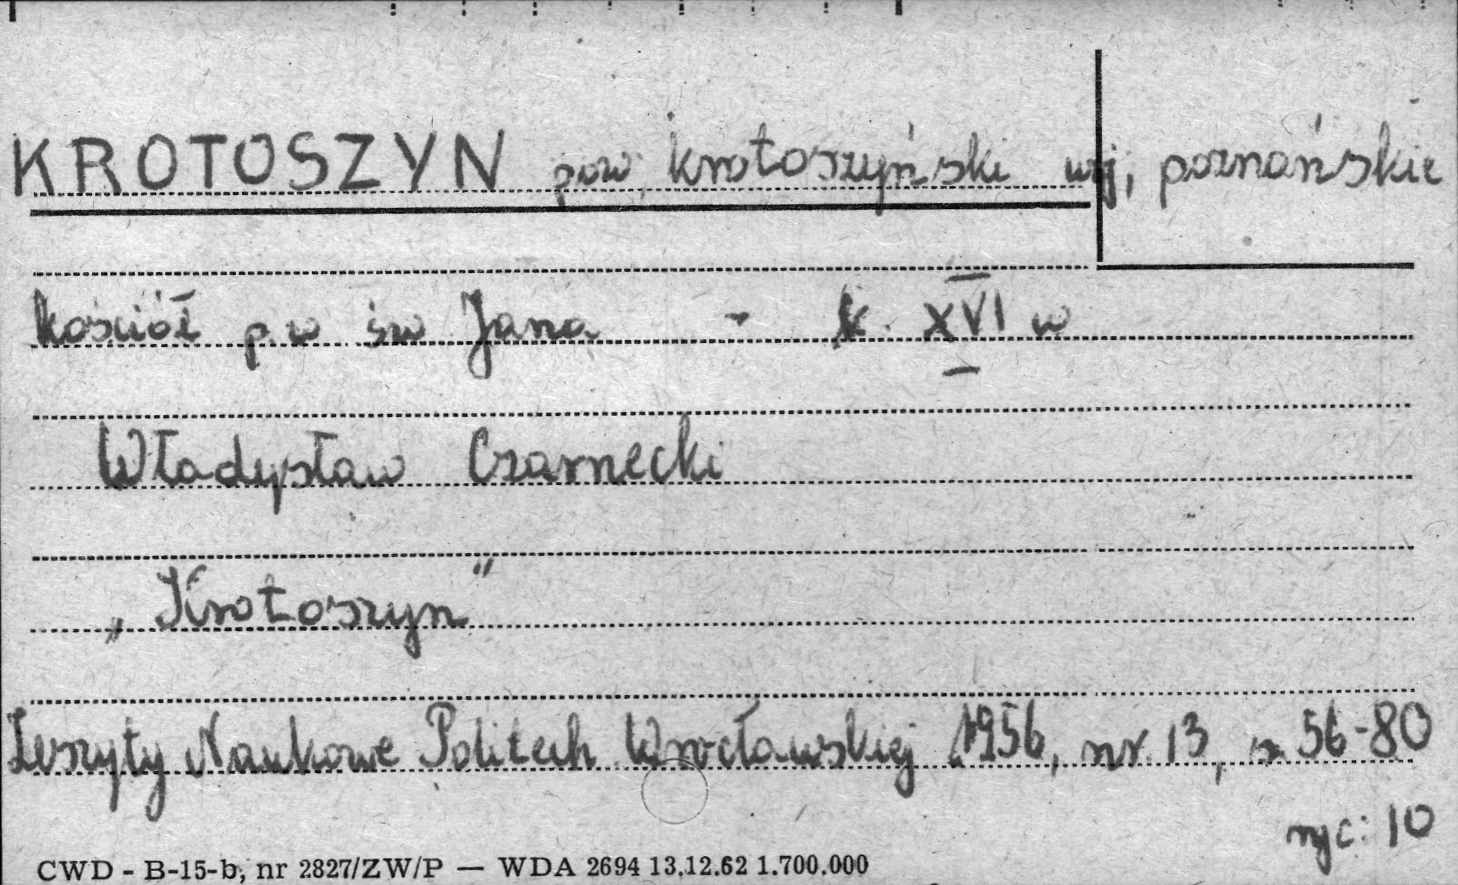 KROTOSZYN pow. krotoszyński wj, poznańskie
kościół p.w św Jana - k. XVI w
Władysław Czarnecki
„Krotoszyn"
Zeszyty Naukowe Politech Wrocławskiej 1956, nr. 13, s. 56-80
ryc: 10
CWD - B-15-b, nr 2827/ZW/P — WDA 2694 13.12.62 1.700.000